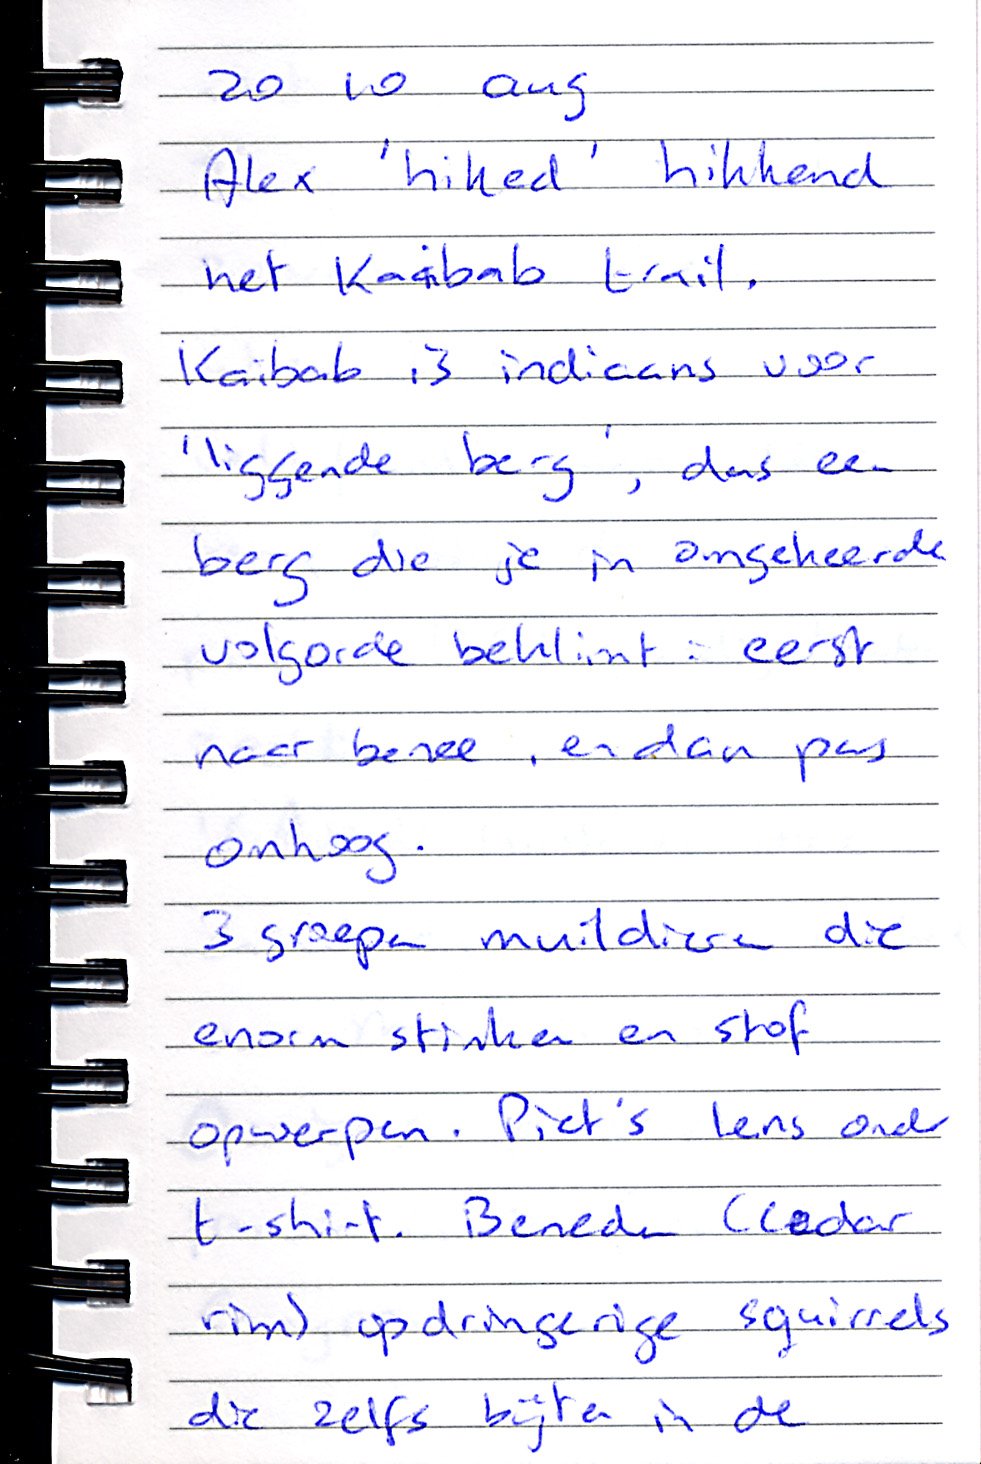 20 10 aug
Alex 'hiked' hikkend
het Kaibab trail.
Kaibab is indiaans voor
'liggende berg', dus een
berg die je in omgekeerde
volgorde beklimt: eerst
naar benee, en dan pas
omhoog.
3 groepen muildieren die
enorm stinken en stof
opwerpen. Piet's lens onder
t-shirt. Beneden (Cedar
rim) opdringerige squirrels
die zelfs bijten in de